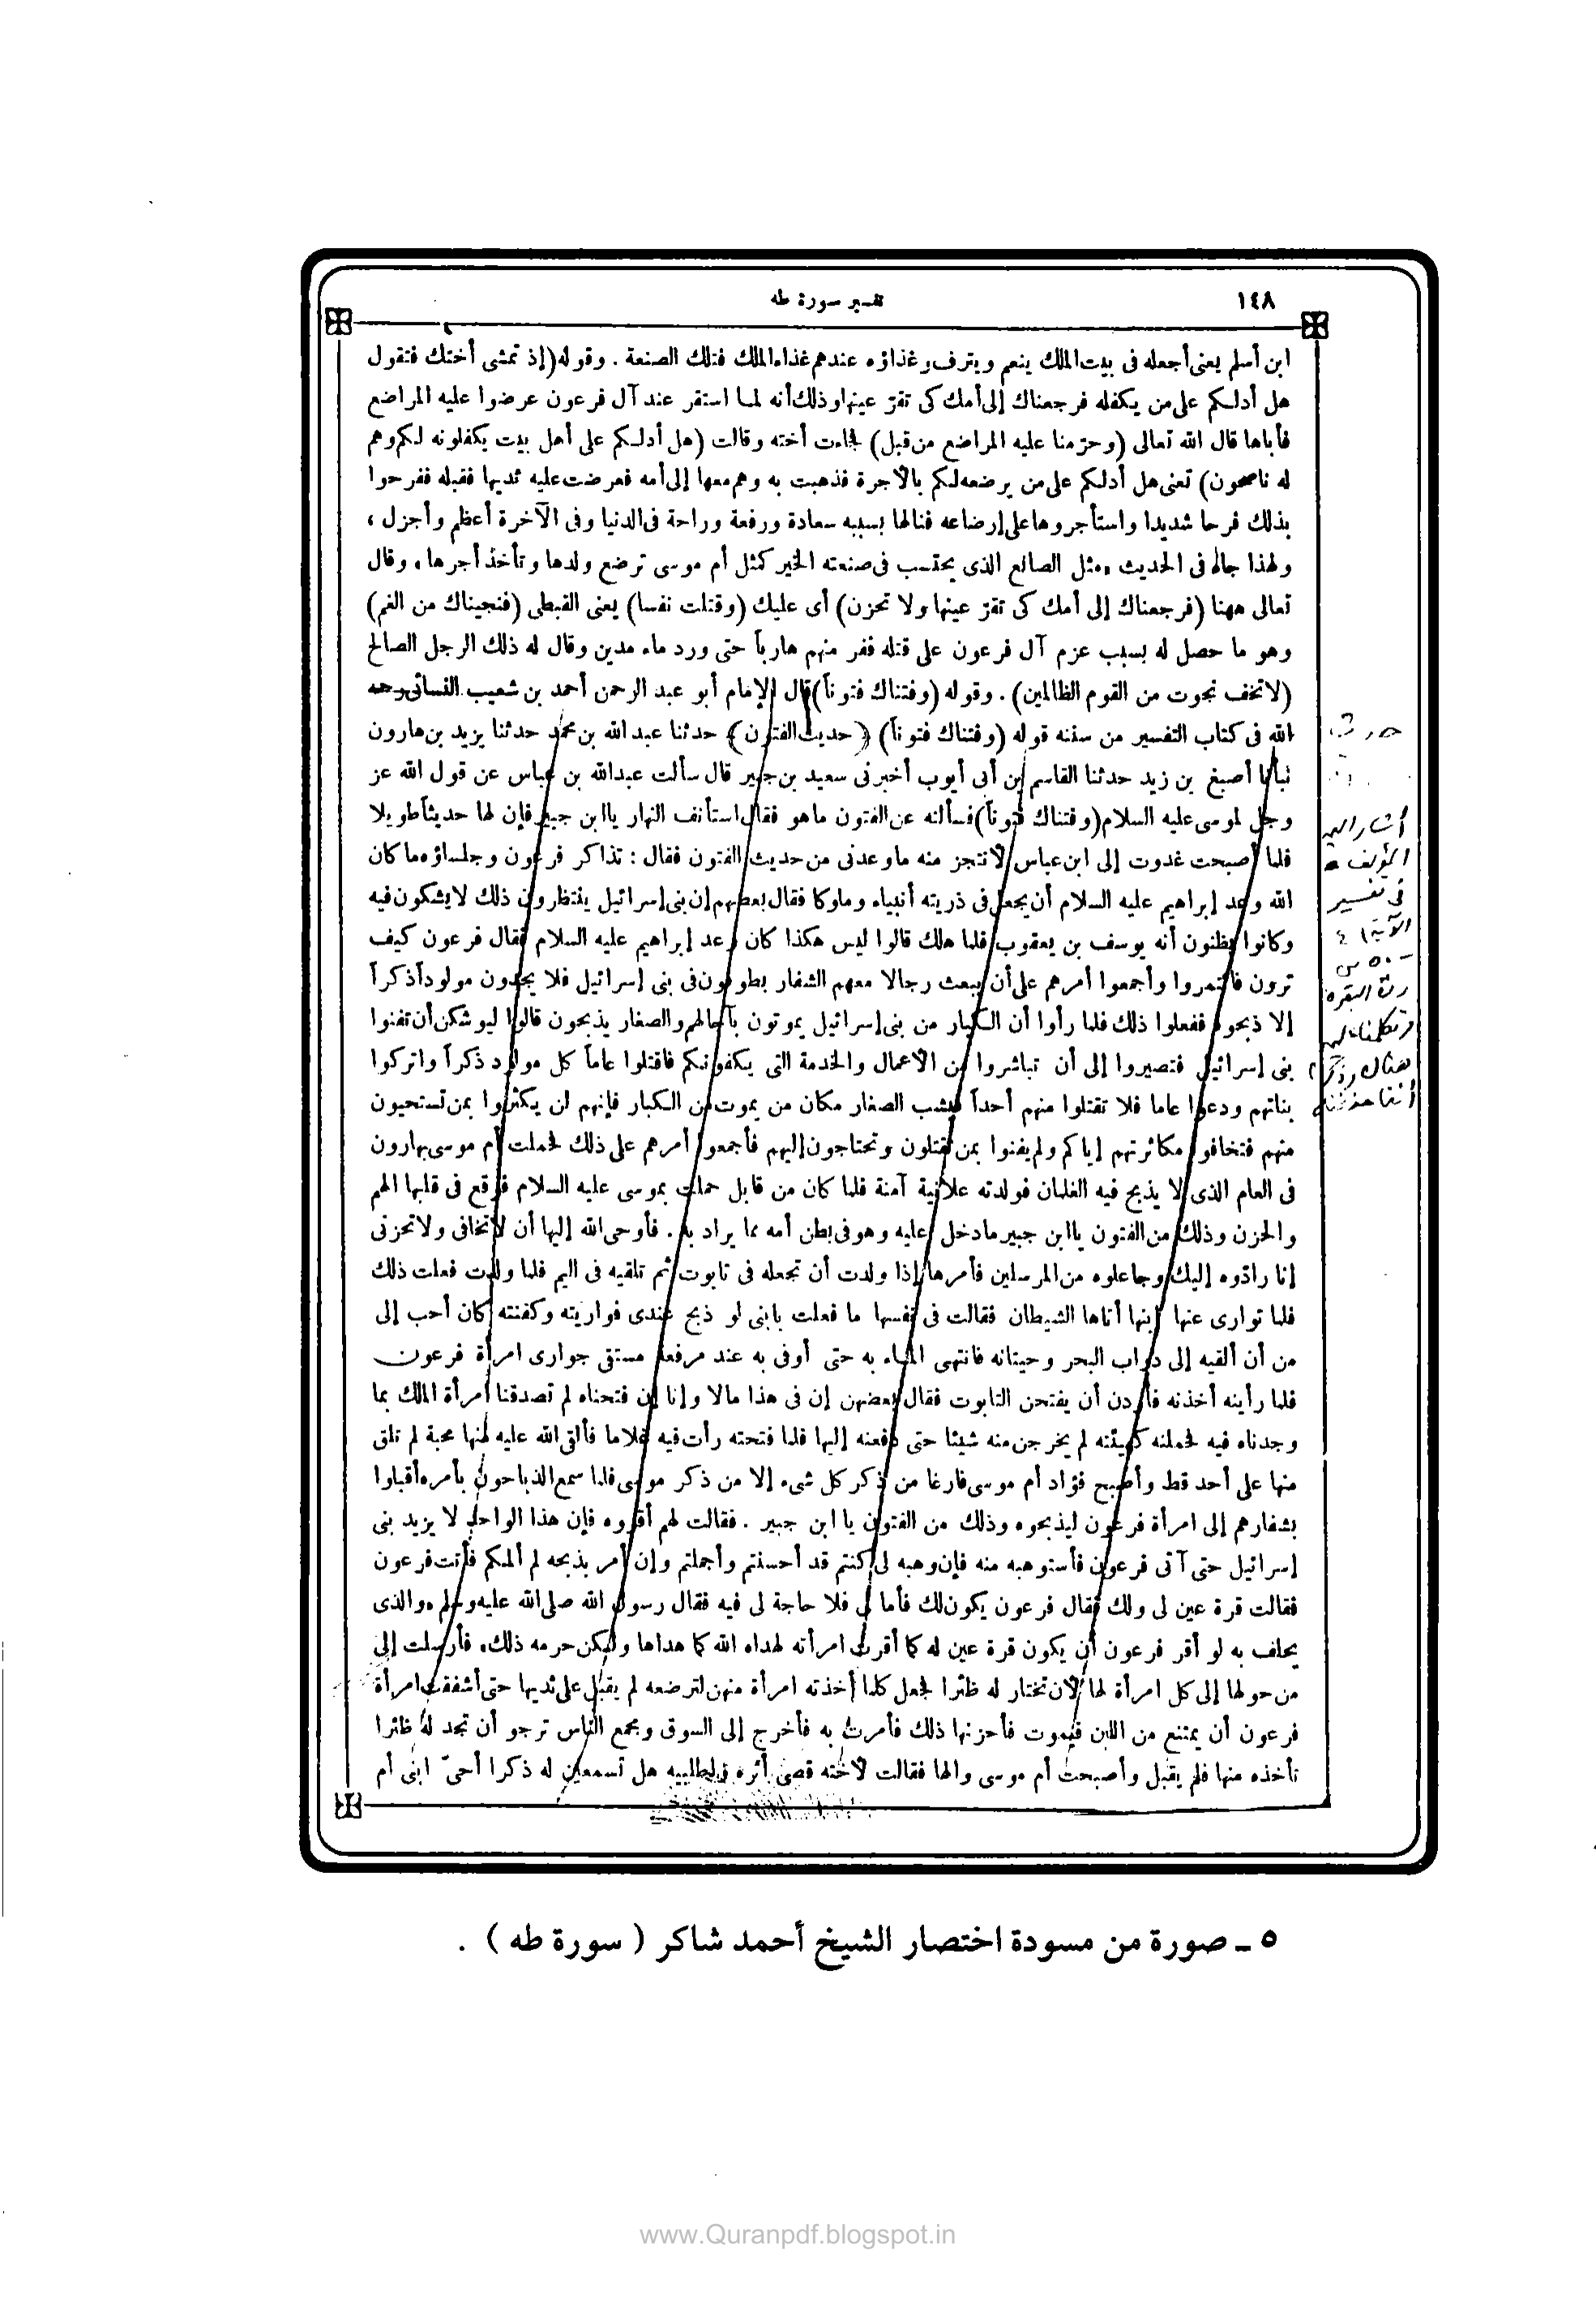 ١٤٨
تفسير سورة طه
ابن أسلم يعنى أجعله فى بيت الملك ينعم ويترف وغذاؤه عندهم غذاء الملك فتلك الصنعة . وقوله (إذ تمشى أختك فتقول
هل أدلكم على من يكفله فرجعناك إلى أمك كى تقرّ عينها وذلك أنه لمـا استقر عند آل فرعون عرضوا عليه المراضع
فأباها قال الله تعالى (وحرّمنا عليه المراضع من قبل) لجاءت أخته وقالت (هل أدلكم على أهل بيت يكفلونه لكم وهم
له ناصحون) تعنى هل أدلكم على من يرضعه لكم بالأجرة فذهبت به وهم معها إلى أمه فعرضت عليه ثديها فقبله ففرحوا
بذلك فرحا شديدا واستأجروها على إرضاعه فنالها بسببه سعادة ورفعة وراحة فى الدنيا وفى الآخرة أعظم وأجزل ،
ولهذا جاء فى الحديث «مثل الصانع الذى يحتسب فى صنعته الخير كمثل أم موسى ترضع ولدها وتأخذ أجرها» وقال
تعالى ههنا (فرجعناك إلى أمك كى تقرّ عينها ولا تحزن) أى عليك (وقتلت نفسا) يعنى القبطى (فنجيناك من الغم)
وهو ما حصل له بسبب عزم آل فرعون على قتله ففر منهم هارباً حتى ورد ماء مدين وقال له ذلك الرجل الصالح
(لا تخف نجوت من القوم الظالمين) . وقوله (وفتناك فتوناً) قال الإمام أبو عبد الرحمن أحمد بن شعيب النسائى رحمه
الله فى كتاب التفسير من سننه قوله (وفتناك فتوناً) (حديث الفتون) حدثنا عبد الله بن محمد حدثنا يزيد بن هارون
نبأنا أصبغ بن زيد حدثنا القاسم بن أبى أيوب أخبرنى سعيد بن جبير قال سألت عبد الله بن عباس عن قول الله عز
وجل لموسى عليه السلام (وفتناك فتوناً) فسألته عن الفتون ما هو فقال استأنف النهار يا ابن جبير فإن لها حديثاً طويلا
فلما أصبحت غدوت إلى ابن عباس لأنتجز منه ما وعدنى من حديث الفتون فقال : تذاكر فرعون وجلساؤه ما كان
الله وعد إبراهيم عليه السلام أن يجعل فى ذريته أنبياء وملوكا فقال بعضهم إن بنى إسرائيل ينتظرون ذلك لا يشكون فيه
وكانوا يظنون أنه يوسف بن يعقوب فلما هلك قالوا ليس هكذا كان وعد إبراهيم عليه السلام فقال فرعون كيف
ترون فائتمروا وأجمعوا أمرهم على أن يبعث رجالا معهم الشفار يطوفون فى بنى إسرائيل فلا يجدون مولوداً ذكراً
إلا ذبحوه ففعلوا ذلك فلما رأوا أن الكبار من بنى إسرائيل يموتون بآجالهم والصغار يذبحون قالوا ليوشكن أن تفنوا
بنى إسرائيل فتصيروا إلى أن تباشروا من الأعمال والخدمة التى يكفونكم فاقتلوا عاماً كل مولود ذكراً واتركوا
بناتهم ودعوا عاما فلا تقتلوا منهم أحداً فيشب الصغار مكان من يموت من الكبار فإنهم لن يكثروا بمن تستحيون
منهم فتخافوا مكاثرتهم إياكم ولم يفنوا بمن تقتلون وتحتاجون إليهم فأجمعوا أمرهم على ذلك لحملت أم موسى بهارون
فى العام الذى لا يذبح فيه الغلمان فولدته علانية آمنة فلما كان من قابل حملت بموسى عليه السلام فوقع فى قلبها الهم
والحزن وذلك من الفتون يا ابن جبير ما دخل عليه وهو فى بطن أمه مما يراد به . فأوحى الله إليها أن لا تخافى ولا تحزنى
إنا رادّوه إليك وجاعلوه من المرسلين فأمرها إذا ولدت أن تجعله فى تابوت ثم تلقيه فى اليم فلما ولدت فعلت ذلك
فلما توارى عنها ابنها أتاها الشيطان فقالت فى نفسها ما فعلت بابنى لو ذبح عندى فواريته وكفنته كان أحب إلى
من أن ألقيه إلى دواب البحر وحيتانه فانتهى الماء به حتى أوفى به عند مرفعة مستقى جوارى امرأة فرعون
فلما رأينه أخذنه فأردن أن يفتحن التابوت فقال بعضهن إن فى هذا مالا وإنا إن فتحناه لم تصدقنا امرأة الملك بما
وجدناه فيه لحملنه كهيئته لم يخرجن منه شيئا حتى دفعنه إليها فلما فتحته رأت فيه غلاما فألقى الله عليه منها محبة لم تلق
منها على أحد قط وأصبح فؤاد أم موسى فارغا من ذكر كل شىء إلا من ذكر موسى فلما سمع الذباحون بأمره أقبلوا
بشفارهم إلى امرأة فرعون ليذبحوه وذلك من الفتون يا ابن جبير . فقالت لهم أقروه فإن هذا الواحد لا يزيد بنى
إسرائيل حتى آتى فرعون فأستوهبه منه فإن وهبه لى كنتم قد أحسنتم وأجملتم وإن أمر بذبحه لم ألمكم فأتت فرعون
فقالت قرة عين لى ولك فقال فرعون يكون لك فأما لى فلا حاجة لى فيه فقال رسول الله صلى الله عليه وسلم «والذى
يحلف به لو أقر فرعون أن يكون قرة عين له كما أقرت امرأته لهداه الله كما هداها ولكن حرمه ذلك» فأرسلت إلى
من حولها إلى كل امرأة لها لأن تختار له ظئرا لجعل كلما أخذته امرأة منهن لترضعه لم يقبل على ثديها حتى أشفقت امرأة
فرعون أن يمتنع من اللبن فيموت فأحزنها ذلك فأمرت به فأخرج إلى السوق ومجمع الناس ترجو أن تجد له ظئرا
تأخذه منها فلم يقبل وأصبحت أم موسى والها فقالت لأخته قصى أثره واطلبيه هل تسمعين له ذكرا أحىّ ابنى أم
أشار إليه
المؤلف
فى تفسير
الآية
رة البقرة
هناك
٥ ـ صورة من مسودة اختصار الشيخ أحمد شاكر ( سورة طه ) .
www.Quranpdf.blogspot.in